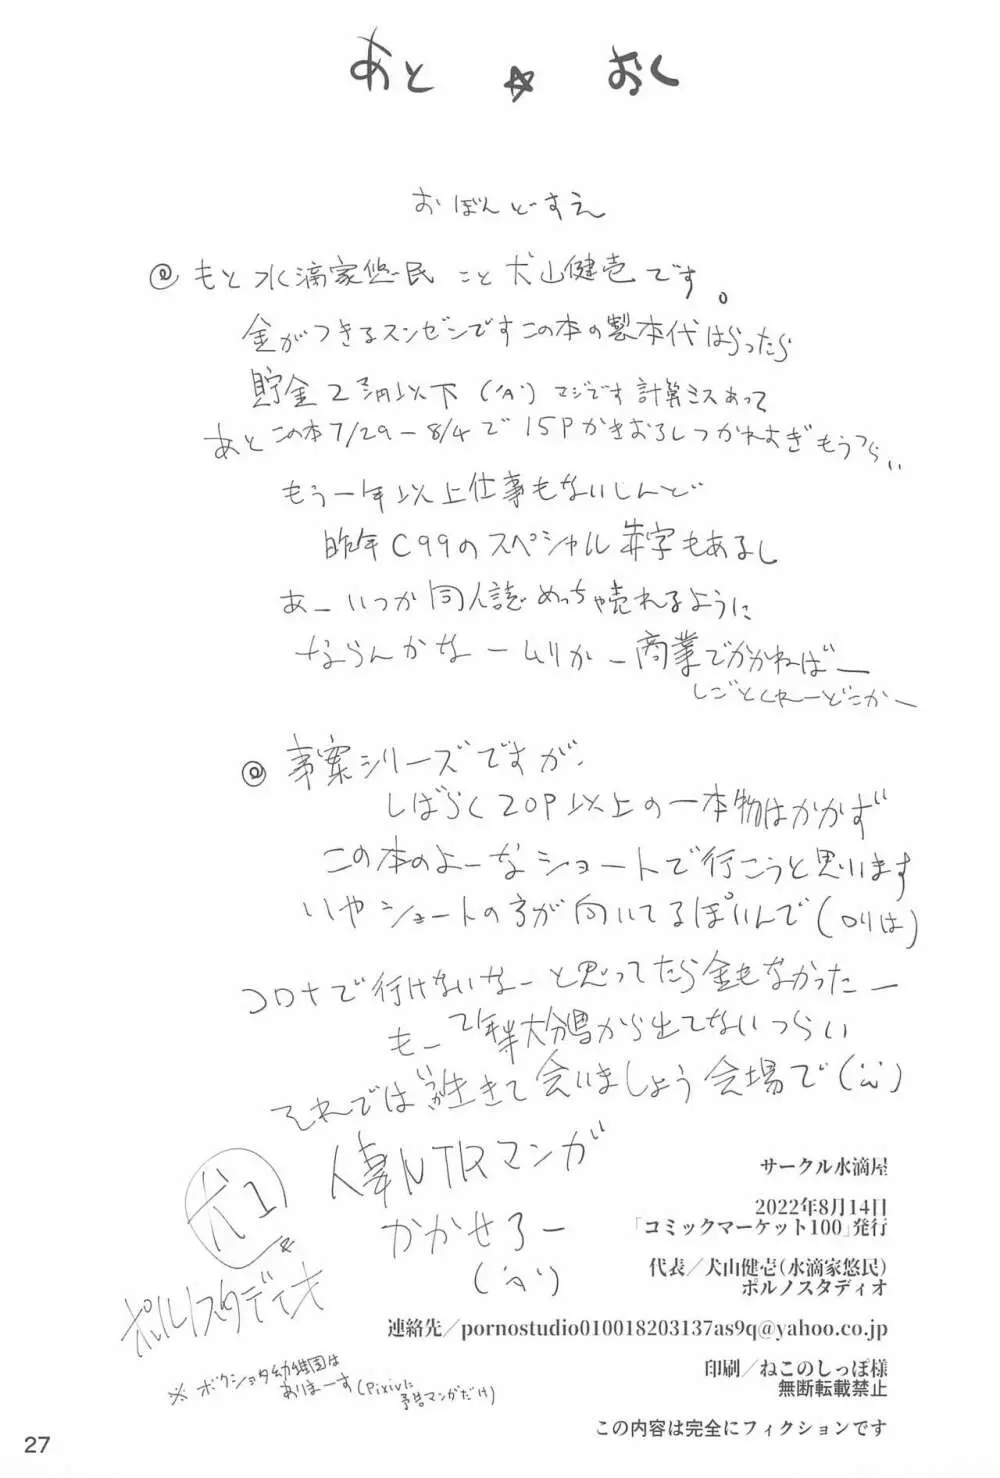 あと☆おく
おぼんどーすえ
@ もと水滴家悠民 こと 犬山健壱です。
金がつきるスンゼンですこの本の製本代はらったら
貯金2万円以下 マジです計算ミスあって
あとこの本7/29-8/4で15Pかきおろしつかれすぎもうつらい
もう一年以上仕事もないしんど
昨年C99のスペシャル赤字もあるし
あーいつか同人誌めっちゃ売れるように
ならんかなームリかー商業でかかねばー
しごとくれーどこかー
@ 事案シリーズですが、
しばらく20P以上の一本物はかかず
この本のよーなショートで行こうと思います
いやショートの方が向いてるぽいんで
コロナで行けないなーと思ってたら金もなかったー
もー2年半大分県から出てないつらい
それでは生きて会いましょう会場で
人妻NTRマンガ
かかせろー
犬1
ポルノスタディオ
※ボクショタ幼稚園は
おりまーす(Pixivに
予告マンガだけ)
サークル水滴屋
2022年8月14日
「コミックマーケット100」発行
代表／犬山健壱(水滴家悠民)
ポルノスタディオ
連絡先／pornostudio010018203137as9q@yahoo.co.jp
印刷／ねこのしっぽ様
無断転載禁止
この内容は完全にフィクションです
27